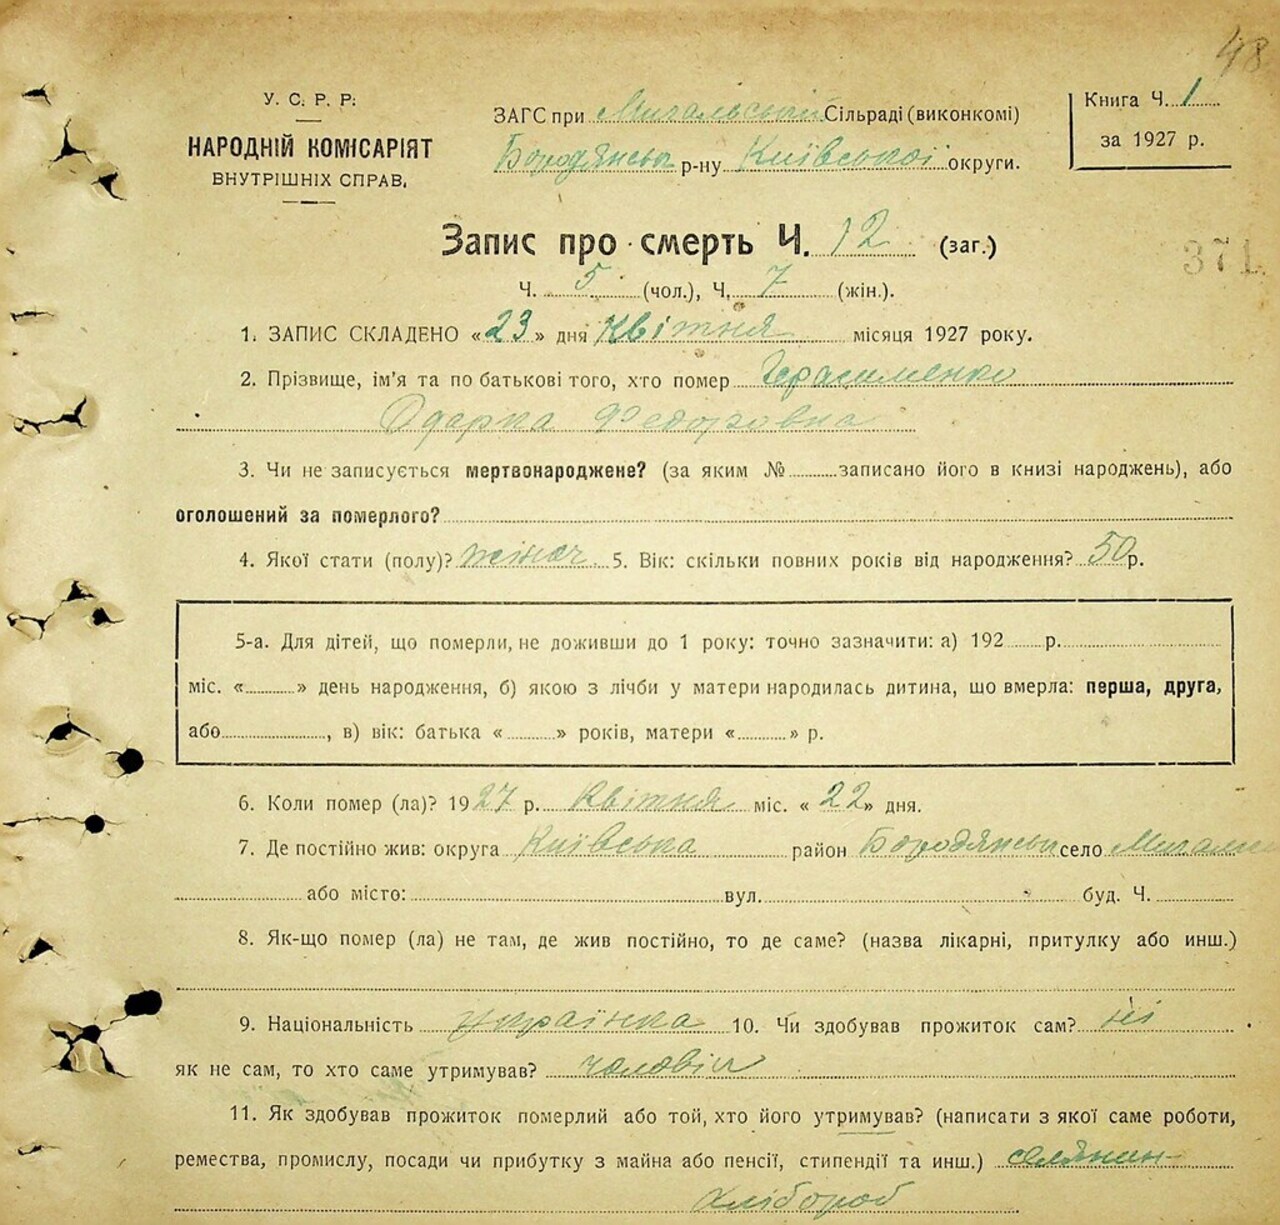 48
У. С. Р. Р.
НАРОДНІЙ КОМІСАРІЯТ
ВНУТРІШНІХ СПРАВ.
ЗАГС при Мигальській Сільраді (виконкомі)
Бородянськ р-ну Київської округи.
Книга Ч. 1
за 1927 р.
Запис про смерть Ч. 12 (заг.)
371
Ч. 5 (чол.), Ч. 7 (жін.).
1. ЗАПИС СКЛАДЕНО «23» дня Квітня місяця 1927 року.
2. Прізвище, ім'я та по батькові того, хто помер Герасименко
Одарка Федоровна
3. Чи не записується мертвонароджене? (за яким № записано його в книзі народжень), або
оголошений за померлого?
4. Якої стати (полу)? жіноч 5. Вік: скільки повних років від народження? 50 р.
5-а. Для дітей, що померли, не доживши до 1 року: точно зазначити: а) 192 р.
міс. « » день народження, б) якою з лічби у матери народилась дитина, що вмерла: перша, друга,
або , в) вік: батька « » років, матери « » р.
6. Коли помер (ла)? 1927 р. Квітня міс. «22» дня.
7. Де постійно жив: округа Київська район Бородянськ село Мигалки
або місто: вул. буд. Ч.
8. Як-що помер (ла) не там, де жив постійно, то де саме? (назва лікарні, притулку або инш.)
9. Національність українка 10. Чи здобував прожиток сам? ні
як не сам, то хто саме утримував? чоловік
11. Як здобував прожиток померлий або той, хто його утримував? (написати з якої саме роботи,
ремества, промислу, посади чи прибутку з майна або пенсії, стипендії та инш.) селянин-
хлібороб